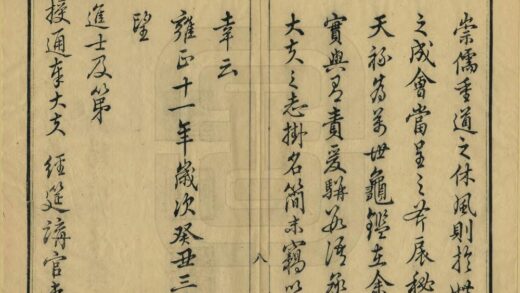 崇儒重道之休風則於
之成會當呈之芹展秘
天祿為萬世龜鑑在余
實與有責爰駢為語
大夫之志掛名簡末竊
八
幸云
雍正十一年歲次癸丑三
望
進士及第
授通奉大夫 經筵講官